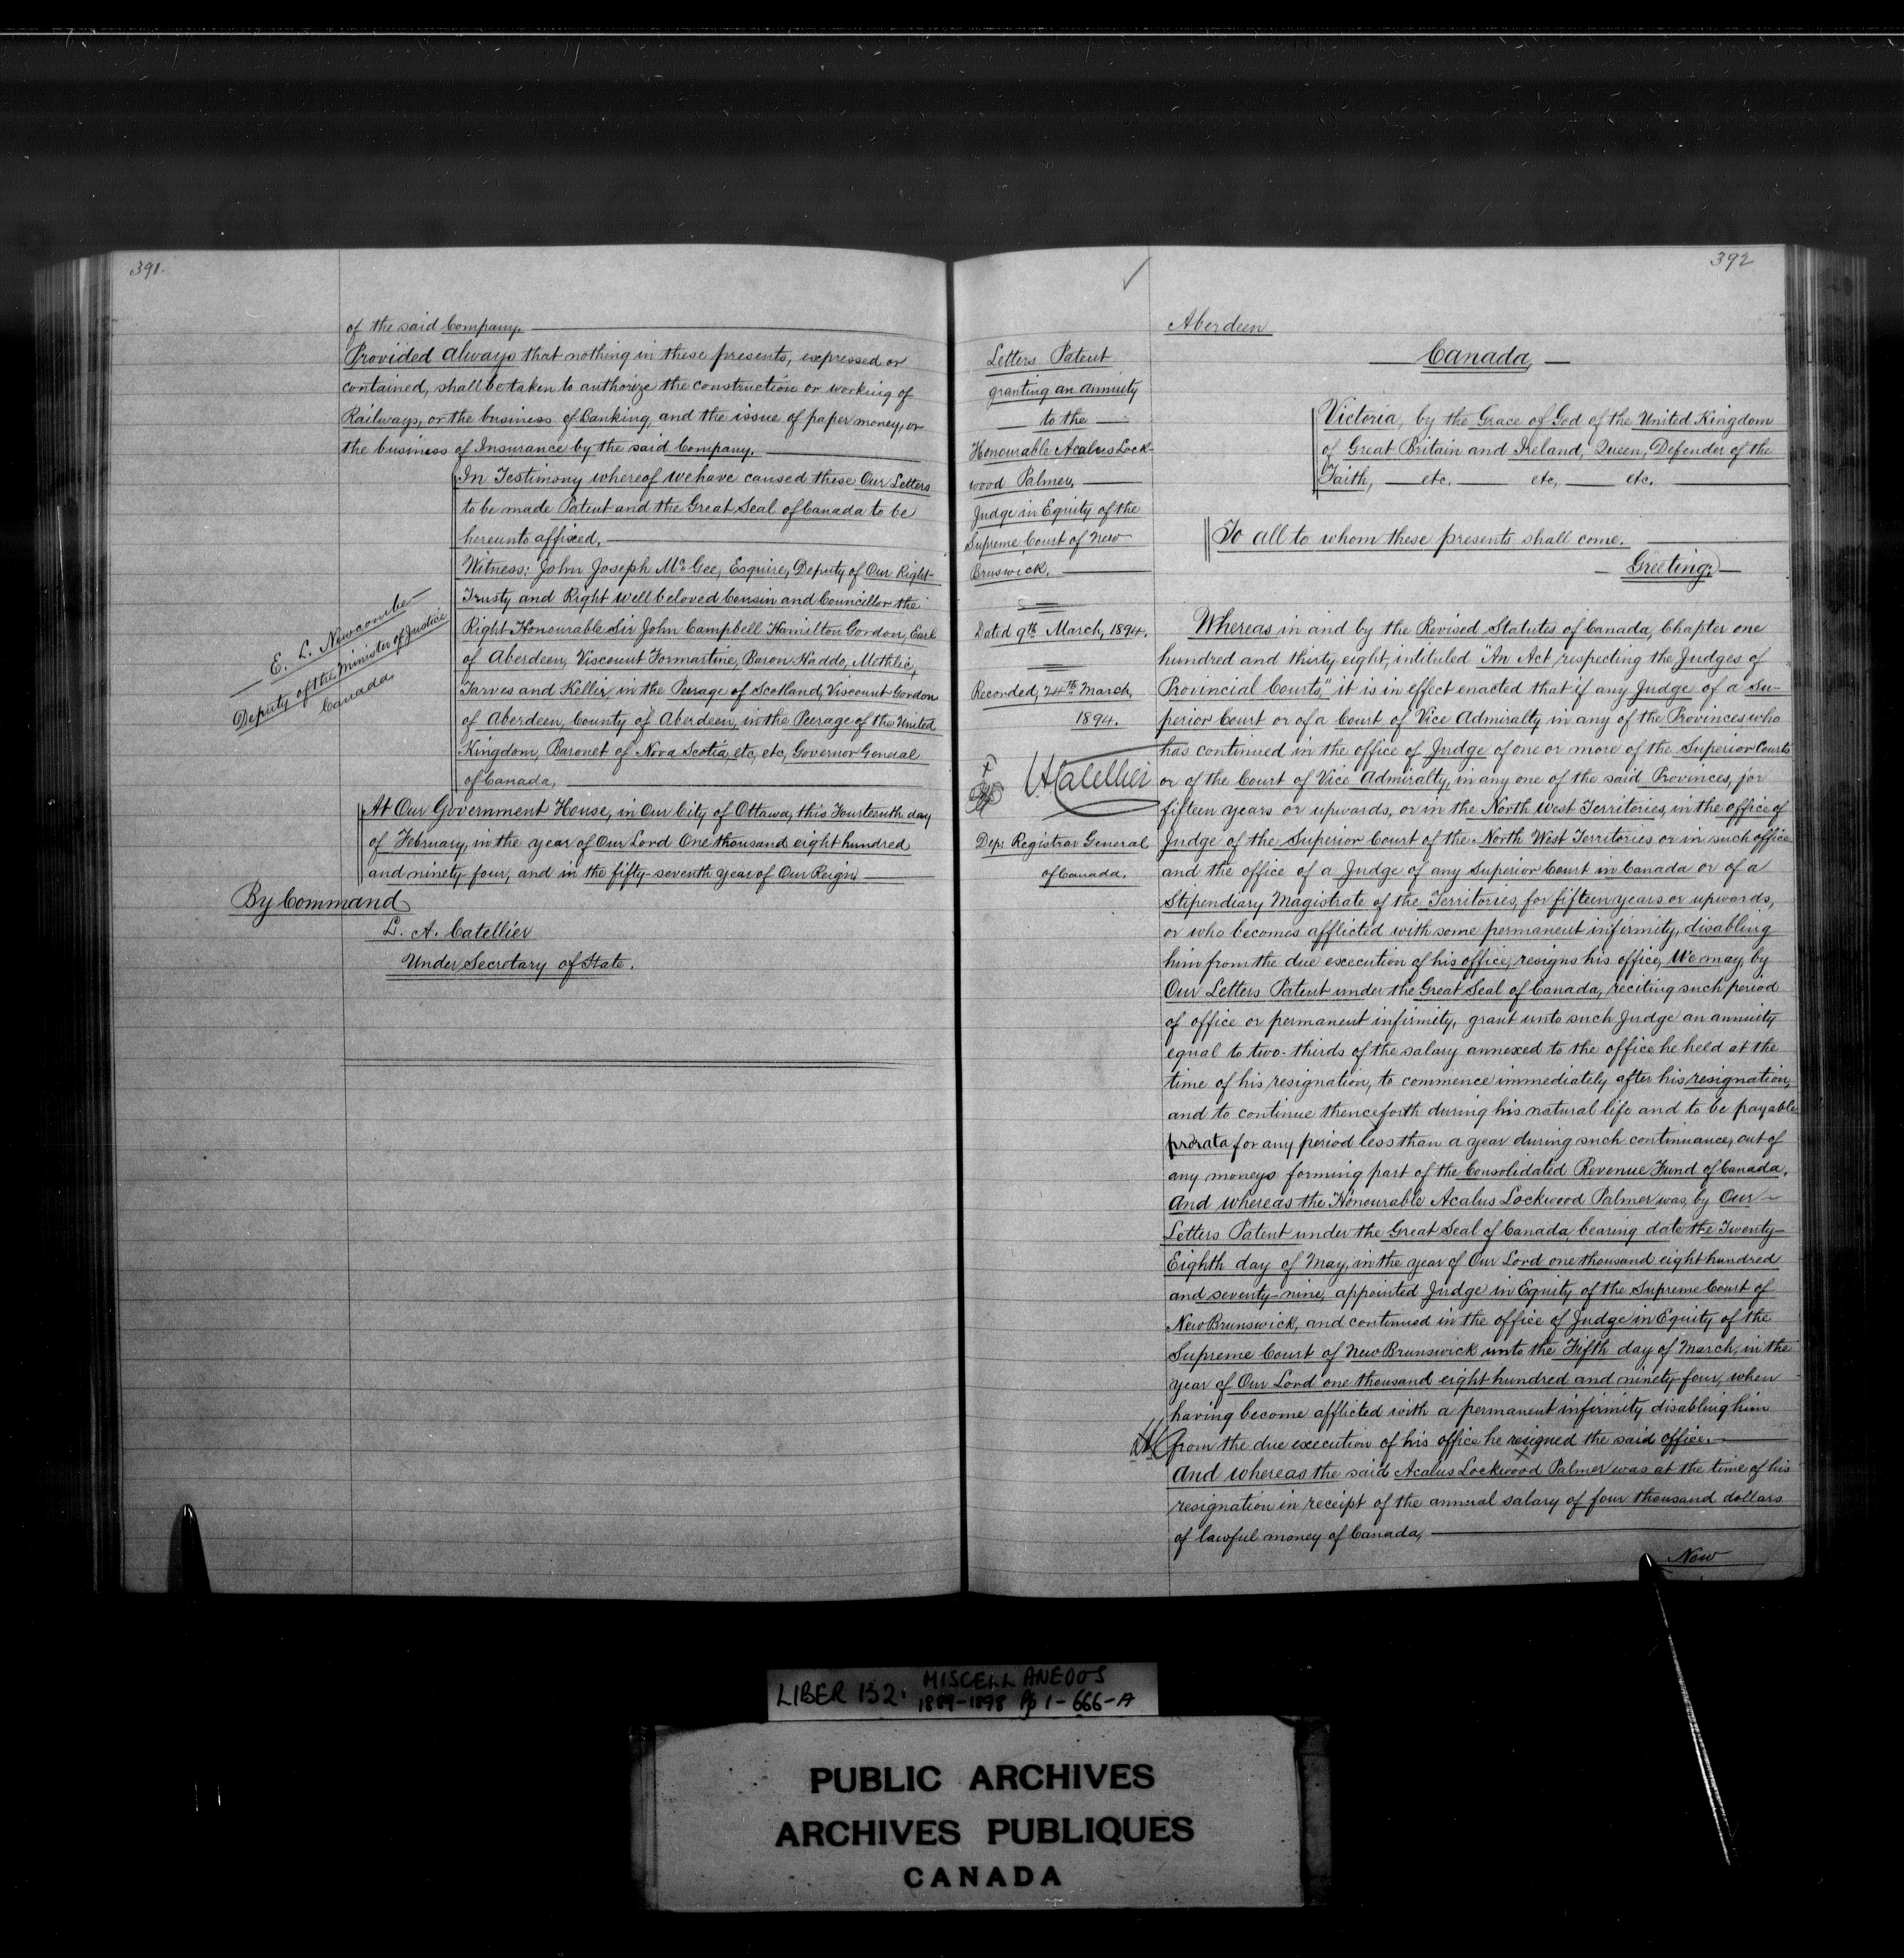 391.
of the said Company.
Provided always that nothing in these presents, expressed or
contained, shall be taken to authorize the construction or working of
Railways, or the business of Banking, and the issue of paper money, or
the business of Insurance by the said Company.
In Testimony whereof we have caused these Our Letters
to be made Patent and the Great Seal of Canada to be
hereunto affixed.
Witness: John Joseph McGee, Esquire, Deputy of Our Right
Trusty and Right well beloved Cousin and Councillor the
Right Honourable Sir John Campbell Hamilton Gordon, Earl
of Aberdeen, Viscount Formartine, Baron Haddo, Methlic,
Tarves and Kellie, in the Peerage of Scotland, Viscount Gordon
of Aberdeen, County of Aberdeen, in the Peerage of the United
Kingdom, Baronet of Nova Scotia, etc, etc, Governor General
of Canada,
E. L. Newcombe
Deputy of the Minister of Justice
Canada
At Our Government House, in Our City of Ottawa, this Fourteenth day
of February, in the year of Our Lord One thousand eight hundred
and ninety-four, and in the fifty-seventh year of Our Reign
By Command
L. A. Catellier
Under Secretary of State.
392
Letters Patent
granting an annuity
to the
Honourable Acalus Lock-
wood Palmer,
Judge in Equity of the
Supreme Court of New
Bruswick.
Dated 9th March, 1894.
Recorded, 24th March,
1894.
L.A. Catellier
Dep: Registrar General
of Canada.
Aberdeen
Canada,
Victoria, by the Grace of God of the United Kingdom
of Great Britain and Ireland, Queen, Defender of the
Faith, etc. etc, etc.
To all to whom these presents shall come.
Greeting:
Whereas in and by the Revised Statutes of Canada, Chapter one
hundred and thirty eight, intituled "An Act respecting the Judges of
Provincial Courts," it is in effect enacted that if any Judge of a Su-
perior Court or of a Court of Vice Admiralty in any of the Provinces who
has continued in the office of Judge of one or more of the Superior Courts
or of the Court of Vice Admiralty, in any one of the said Provinces, for
fifteen years or upwards, or in the North West Territories, in the office of
Judge of the Superior Court of the North West Territories or in such office
and the office of a Judge of any Superior Court in Canada or of a
Stipendiary Magistrate of the Territories, for fifteen years or upwards,
or who becomes afflicted with some permanent infirmity, disabling
him from the due excecution of his office, resigns his office, We may, by
Our Letters Patent under the Great Seal of Canada, reciting such period
of office or permanent infirmity, grant unto such Judge an annuity
equal to two-thirds of the salary annexed to the office he held at the
time of his resignation, to commence immediately after his resignation,
and to continue thenceforth during his natural life and to be payable
pro rata for any period less than a year during such continuance, out of
any moneys forming part of the Consolidated Revenue Fund of Canada.
And whereas the Honourable Acalus Lockwood Palmer was, by Our
Letters Patent under the Great Seal of Canada, bearing date the Twenty-
Eighth day of May, in the year of Our Lord one thousand eight hundred
and seventy-nine, appointed Judge in Equity of the Supreme Court of
New Brunswick, and continued in the office of Judge in Equity of the
Supreme Court of New Brunswick unto the Fifth day of March, in the
year of Our Lord one thousand eight hundred and ninety-four, when
having become afflicted with a permanent infirmity disabling him
from the due execution of his office he resigned the said office.
And whereas the said Acalus Lockwood Palmer was at the time of his
resignation in receipt of the annual salary of four thousand dollars
of lawful money of Canada,
Now
LIBER 132. MISCELLANEOUS
1889-1898 Pp 1-666-A
PUBLIC ARCHIVES
ARCHIVES PUBLIQUES
CANADA